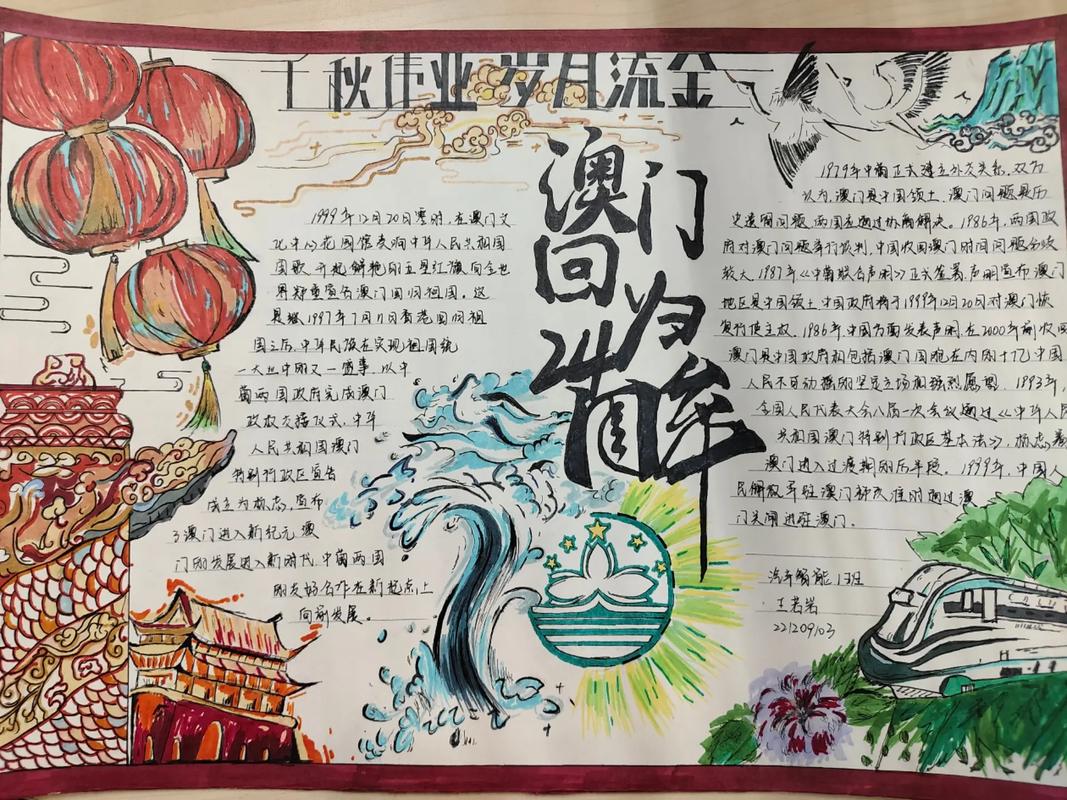 千秋伟业 岁月流金
澳门
回归
二十四周年
1999年12月20日零时,在澳门文
化中心花园馆奏响中华人民共和国
国歌,升起鲜艳的五星红旗向全世
界郑重宣告澳门回归祖国。这
是继1997年7月1日香港回归祖
国之后,中华民族在实现祖国统
一大业中的又一盛事。以中
葡两国政府完成澳门
政权交接仪式,中华
人民共和国澳门
特别行政区宣告
成立为标志,宣布
了澳门进入新纪元,澳
门的发展进入新时代,中葡两国
的友好合作在新起点上
向前发展。
1979年中葡正式建立外交关系,双方
认为,澳门是中国领土,澳门问题是历
史遗留问题,两国应通过协商解决。1986年,两国政
府对澳门问题举行谈判,中国收回澳门时间问题分歧
较大,1987年《中葡联合声明》正式签署,声明宣布澳门
地区是中国领土,中国政府将于1999年12月20日对澳门恢
复行使主权。1986年,中国方面发表声明,在2000年前收回
澳门是中国政府和包括澳门同胞在内的十亿中国
人民不可动摇的坚定立场和强烈愿望。1993年,
全国人民代表大会八届一次会议通过《中华人民
共和国澳门特别行政区基本法》,标志着
澳门进入过渡期的后半段。1999年,中国人
民解放军驻澳门部队准时通过澳
门关闸进驻澳门。
汽车智能1班
王若岩
22120903